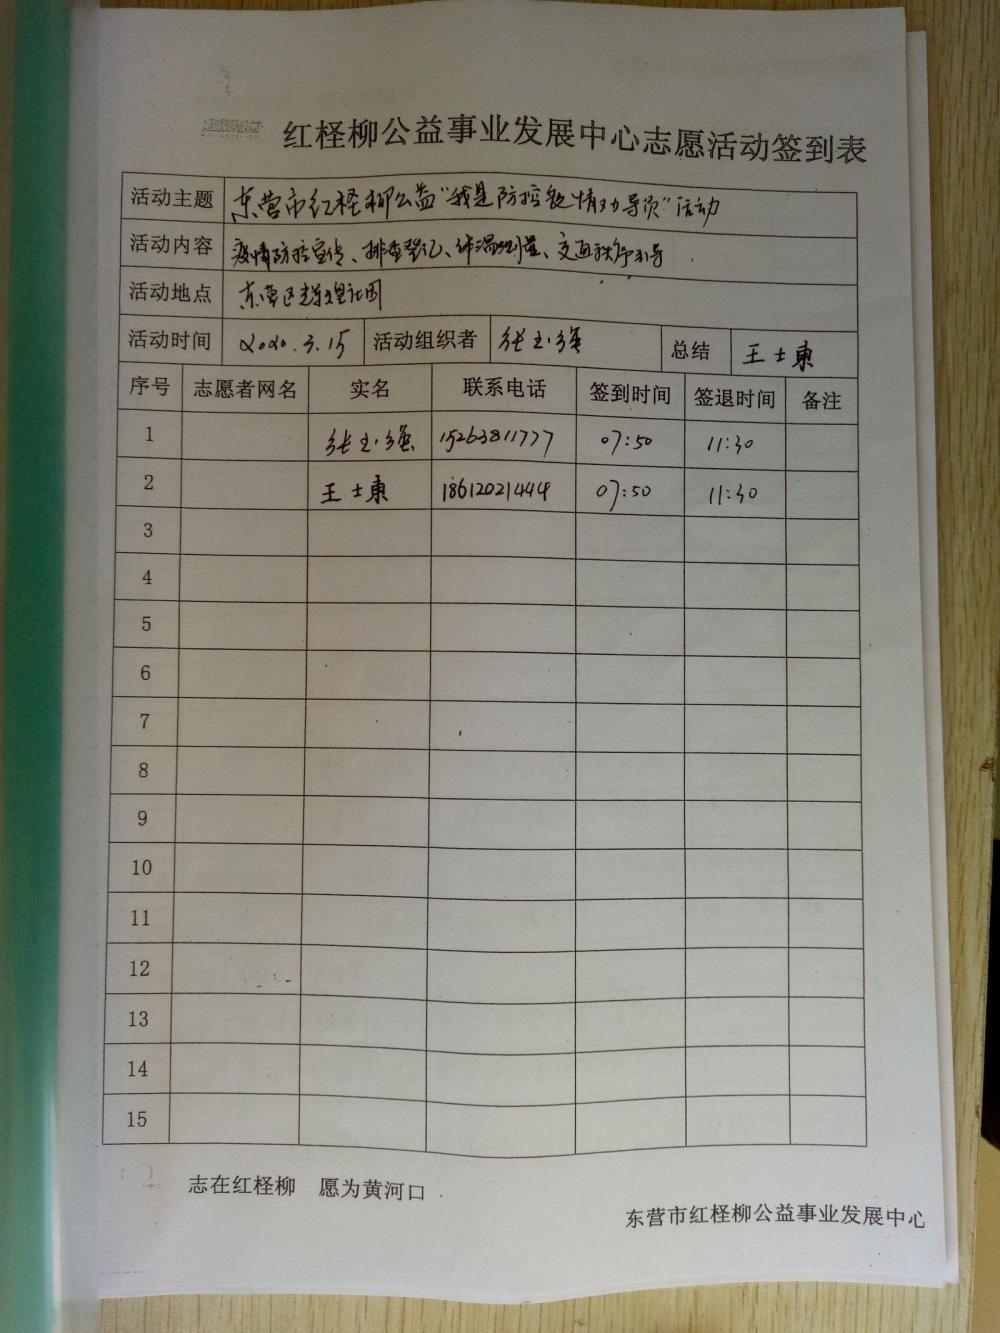 红柽柳公益事业发展中心志愿活动签到表
活动主题 东营市红柽柳公益“我是防控疫情劝导员”活动
活动内容 疫情防控宣传、排查登记、体温测量、交通秩序引导
活动地点 东营区
活动时间 2020.3.15 活动组织者 张玉强 总结 王士东
序号 志愿者网名 实名 联系电话 签到时间 签退时间 备注
1 张玉强 15263811777 07:50 11:30
2 王士东 18612021444 07:50 11:30
3
4
5
6
7
8
9
10
11
12
13
14
15
志在红柽柳 愿为黄河口
东营市红柽柳公益事业发展中心